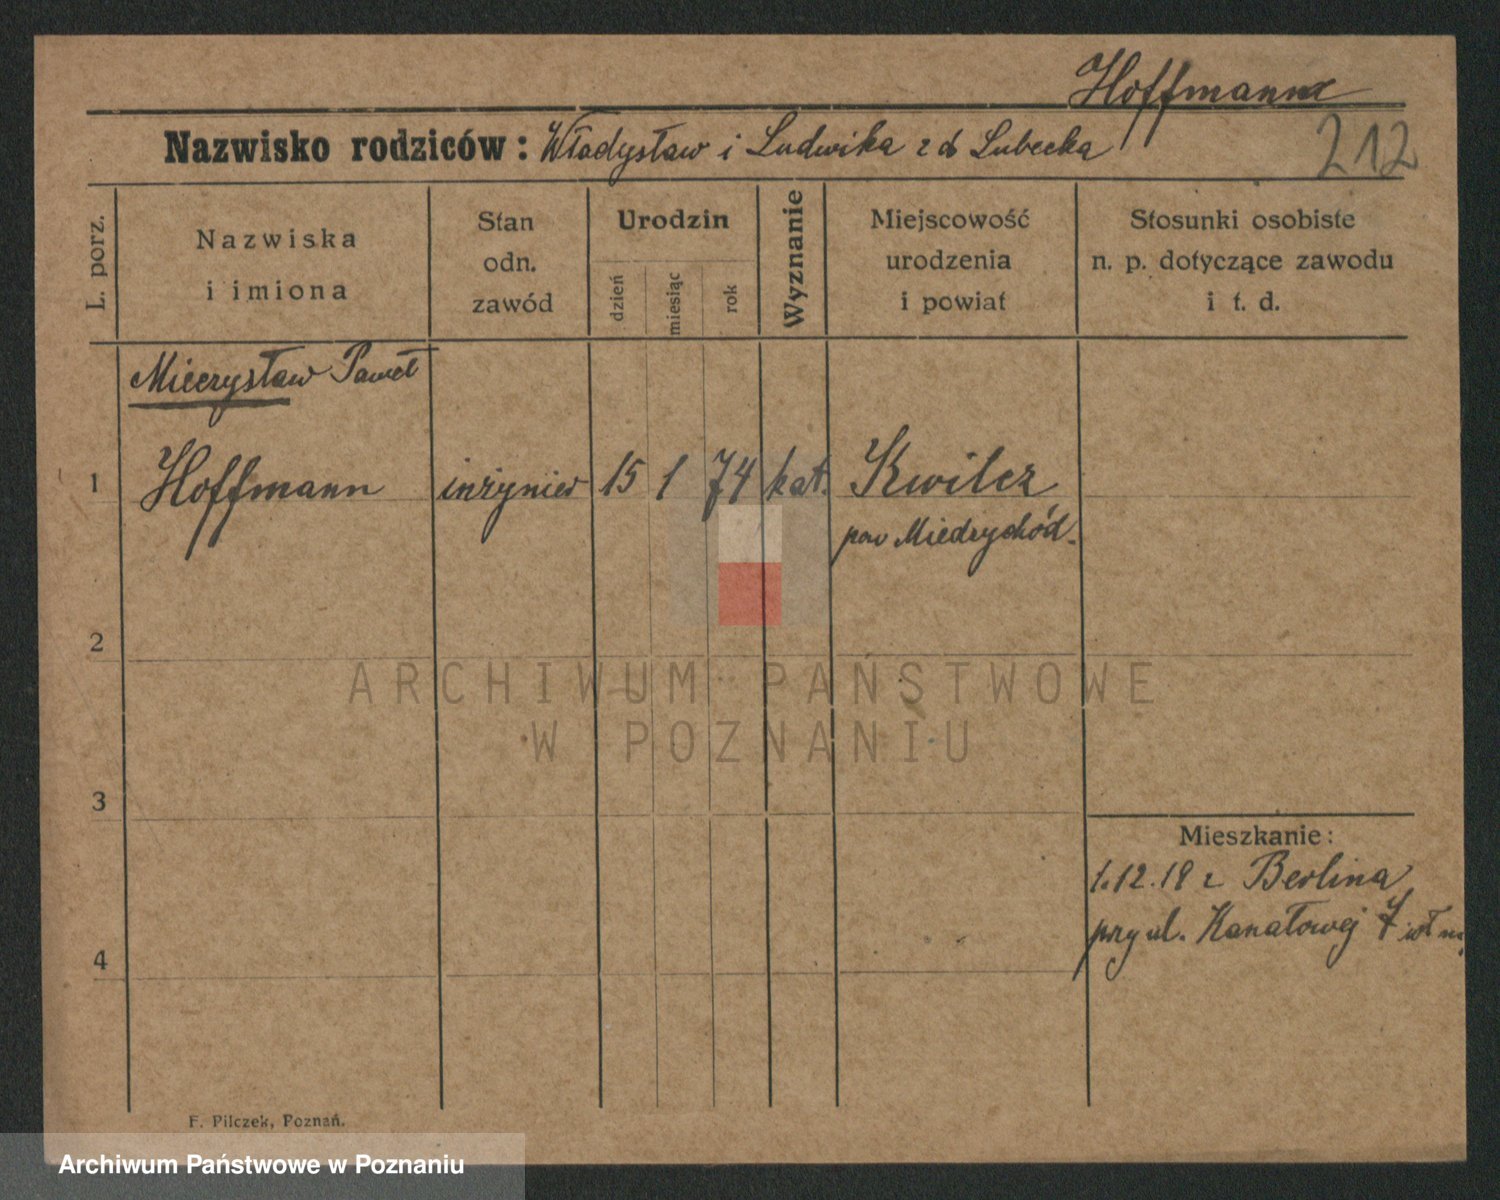 Hoffmann
Nazwisko rodziców: Władysław i Ludwika z d Lubecka
212
L. porz.
Nazwiska
i imiona
Stan
odn.
zawód
Urodzin
dzień
miesiąc
rok
Wyznanie
Miejscowość
urodzenia
i powiat
Stosunki osobiste
n. p. dotyczące zawodu
i t. d.
Mieczysław Paweł
1 Hoffmann inżynier 15 1 74 kat. Kwilcz
pow Miedzychód.
2
3
4
Mieszkanie:
1.12.18 z Berlina
przy ul. Kanałowej 7
F. Pilczek, Poznań.
ARCHIWUM PAŃSTWOWE
W POZNANIU
Archiwum Państwowe w Poznaniu